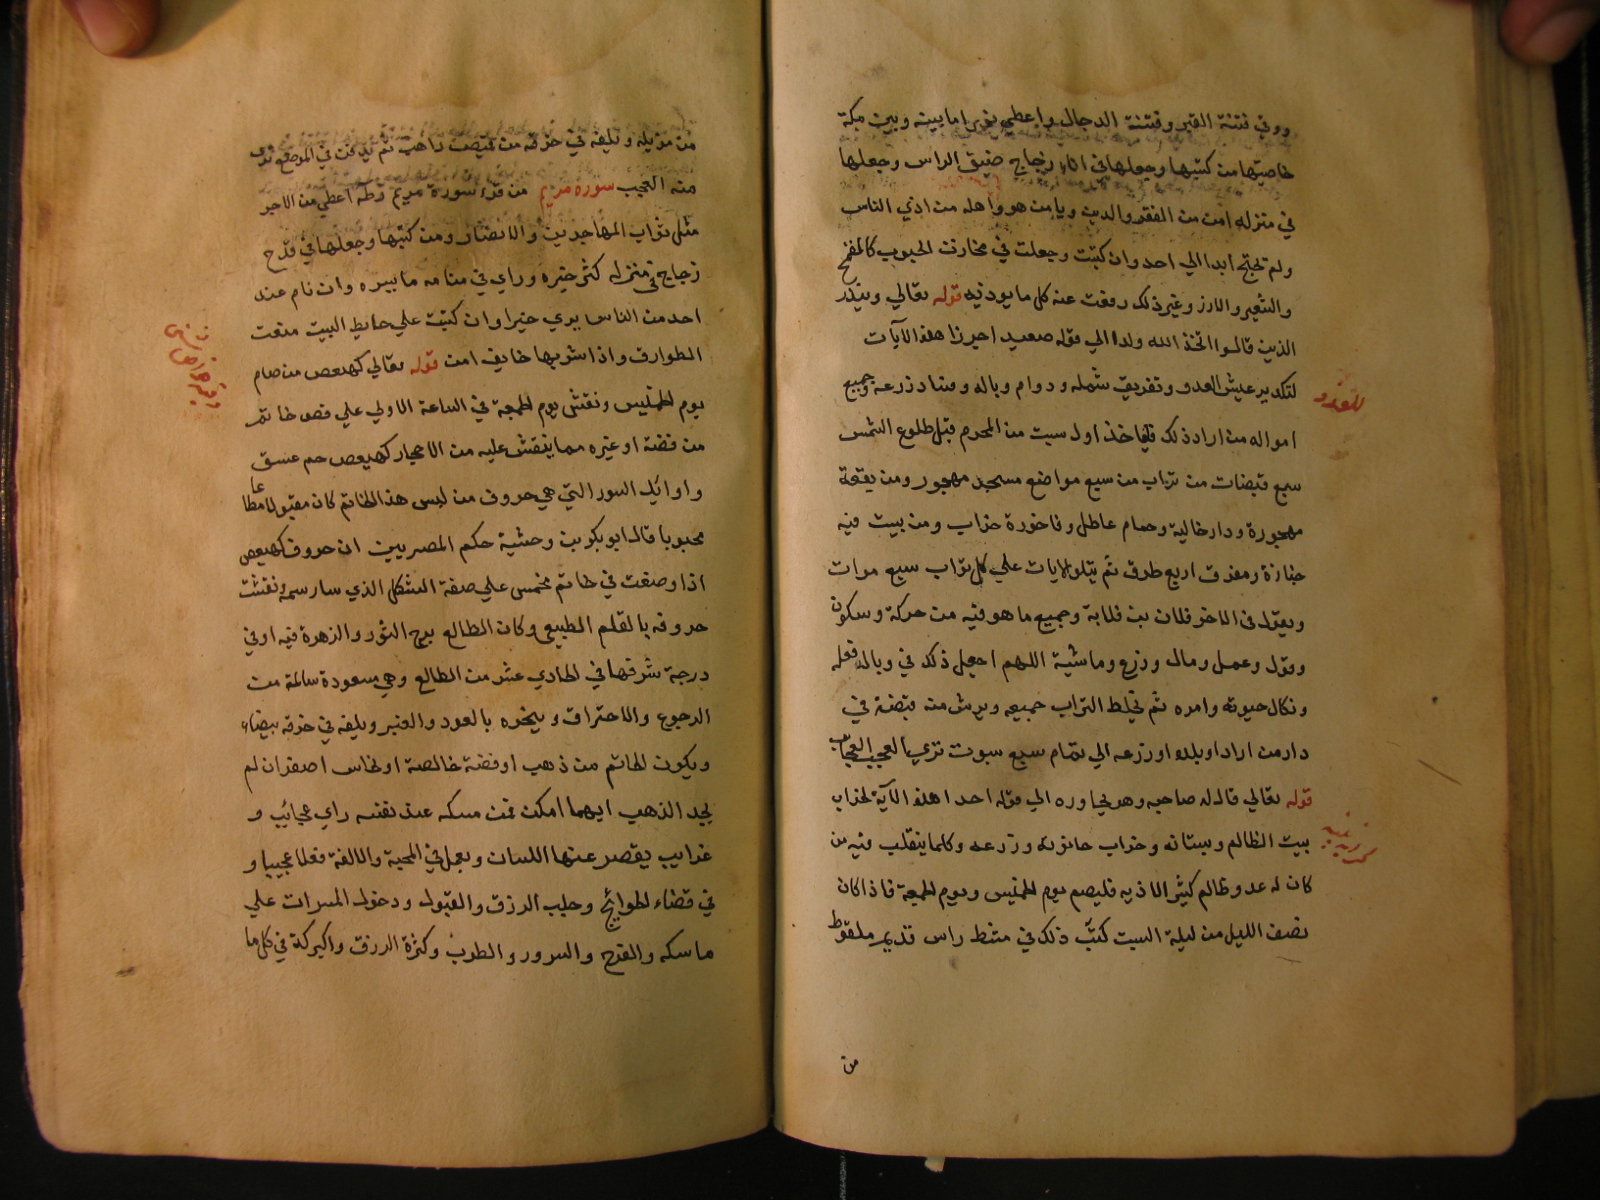 ووقي فتنة القبر وفتنة الدجال واعطي نورا ما بينه وبين مكة
خاصيتها من كتبها وجعلها في اناء زجاج ضيق الراس وجعلها
في منزله امن من الفقر والدين ويامن هو واهله من اذي الناس
ولم يحتج ابدا الي احد وان كتبت وجعلت في مخازن الحبوب كالقمح
والشعير والارز وغير ذلك رفعت عنه كل ما يوذيه قوله تعالي وينذر
الذين قالوا اتخذ الله ولدا الي قوله صعيدا جرزا هذه الآيات
لتكدير عيش العدو وتفريق شمله ودوام وباله وفساد زرعه وجميع
للعدو
امواله من اراد ذلك فلياخذ اول سبت من المحرم قبل طلوع الشمس
سبع قبضات من تراب من سبع مواضع مسجد مهجور ومن بقعة
مهجورة ودار خالية وحمام عاطل وفاخورة خراب ومن بيت فيه
جنازة ومفرق اربع طرق ثم يتلو الايات علي كل تراب سبع مرات
ويقول في الاخر فلان بن فلانة وجميع ما هو فيه من حركة وسكون
وقول وعمل ومال وزرع وماشية اللهم اجعل ذلك في وبال
ونكال حيوته وامره ثم يخلط التراب جميعه ويرش منه قبضة في
دار من اراد او بلده او زرعه الي تمام سبع سبوت تري العجب العجاب
قوله تعالي قال له صاحبه وهو يحاوره الي قوله احدا هذه الآية لخراب
بيت الظالم وبستانه وخراب حانوته وزرعه وكلما ينقلب فيه من
كان له عدو ظالم كثير الاذيه فليصم يوم الخميس ويوم الجمعة فاذا كان
نصف الليل من ليلة السبت كتب ذلك في مشط راس قديم ملقوط
من
من مزبله ويلفه في خرقة من قميص راهب ثم يدفن في الموضع تري
منه العجب سوره مريم من قرء سورة مريم وطه اعطي من الاجر
مثل ثواب المهاجرين والانصار ومن كتبها وجعلها في قدح
زجاج في منزله كثر خيره وراي في منامه ما يسره وان نام عند
احد من الناس يري خيرا وان كتبت علي حايط البيت منعت
الطوارق واذا شربها خايف امن قوله تعالي كهيعص من صام
يوم الخميس ونقش يوم الجمعة في الساعة الاولي علي فص خاتم
من فضة او غيره مما ينقش عليه من الاحجار كهيعص حم عسق
واوايل السور التي هي حروف من لبس هذا الخاتم كان مقبولا مطاعا
محبوبا قال ابو بكر بن وحشية حكم المصريين ان حروف كهيعص
اذا وضعت في خاتم مخمس علي صفة الشكل الذي سارسمه نقشت
حروفه بالقلم الطبيعي وكان الطالع برج الثور والزهرة فيه او في
درجة شرفها في الحادي عشر من الطالع وهي مسعودة سالمة من
الرجوع والاحتراق ويبخره بالعود والعنبر ويلفه في خرقه بيضاء
ويكون الخاتم من ذهب او فضة خالصة او نحاس اصفر ان لم
يجد الذهب ايهما امكن فمن مسكه عند نفسه راي عجائب و
غرايب يقصر عنها اللسان ويعمل في المحبة والالفة فعلا عجيبا و
في قضاء الحوائج وجلب الرزق والقبول ودخول المسرات علي
ماسكه والفرح والسرور والطرب وكثرة الرزق والبركة في كل ما